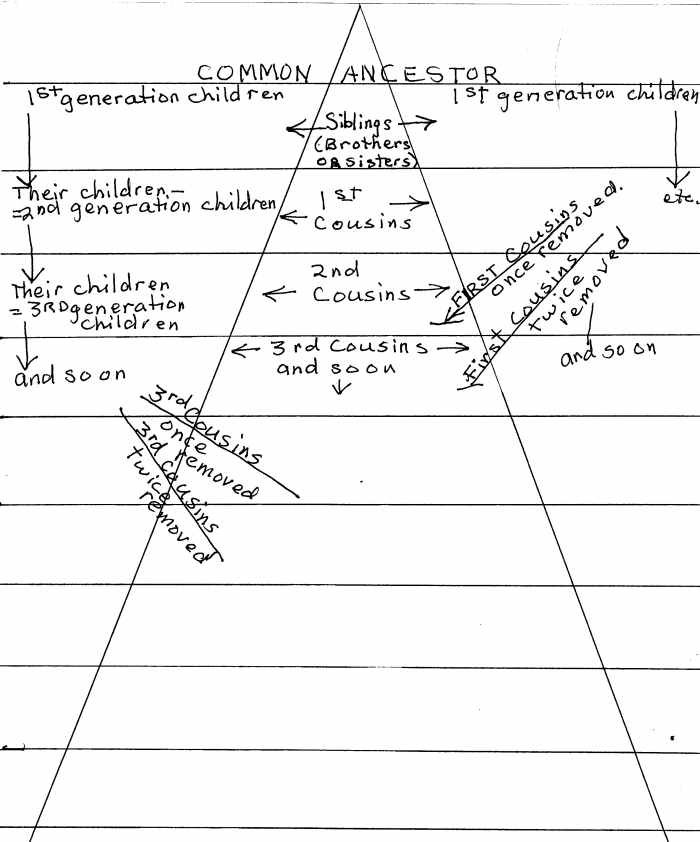 COMMON ANCESTOR
1st generation children
1st generation children
Siblings
(Brothers
OR sisters)
Their children—
=2nd generation children
1st
Cousins
etc.
FIRST COUSINS
once removed.
Their children
= 3RD generation
children
2nd
Cousins
First Cousins
twice
removed
and so on
and so on
3rd Cousins
and so on
3rd Cousins
once
removed
3rd cousins
twice
removed